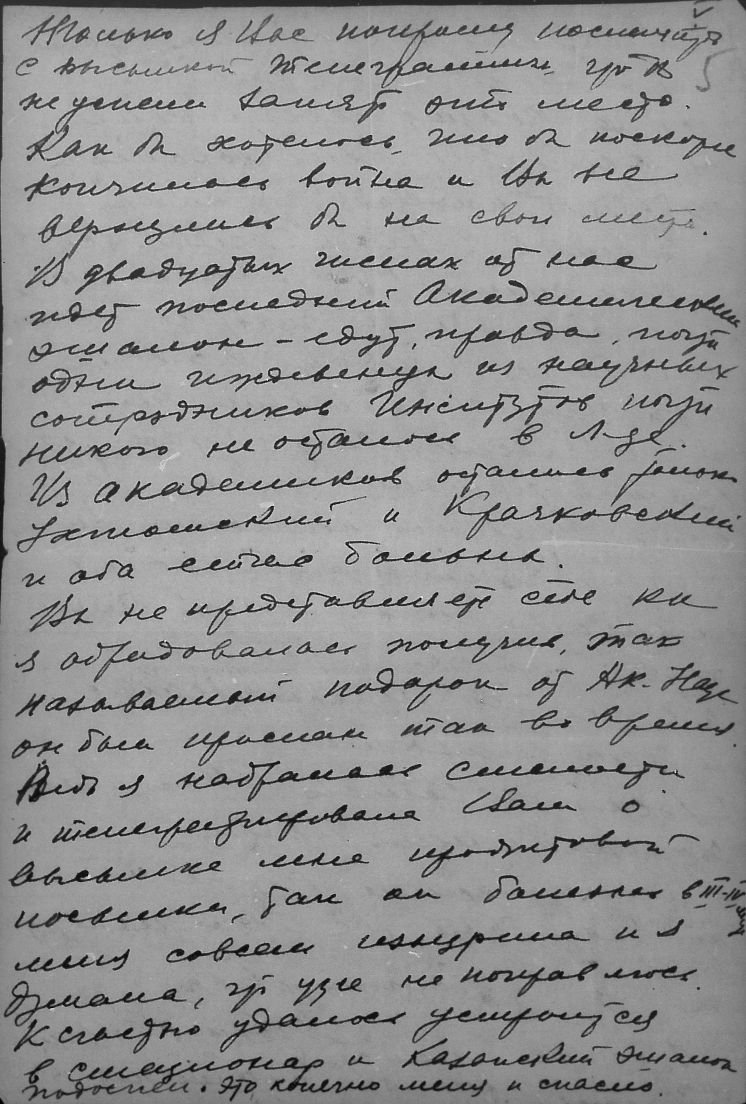 V
Только я Вас попрошу поспешить 5
с высылкой телеграммы, чтоб
не успели занять это место.
Как бы хотелось, что бы поскорее
кончилась война и Вы все
вернулись бы на свои места.
В двадцатых числах от нас
идет последний Академический
эшалон – едут, правда, почти
одни иждивенцы из научных
сотрудников Институтов почти
никого не осталось в Л-де.
Из академиков остались только
Ухтомский и Крачковский
и оба сейчас больны.
Вы не представляете себе как
я обрадовалась получив, так
называемый подарок от Ак. Наук
он был прислан так во время.
Ведь я набралась смелости
и телеграфировала Вам о
высылке мне продуктовой
посылки, так как болезнь в III-IV
меня совсем изнурила и я
думала, что уже не поправлюсь.
К счастью удалось устроится
в стационар и Казанский эшалон
подоспел. Это конечно меня и спасло.